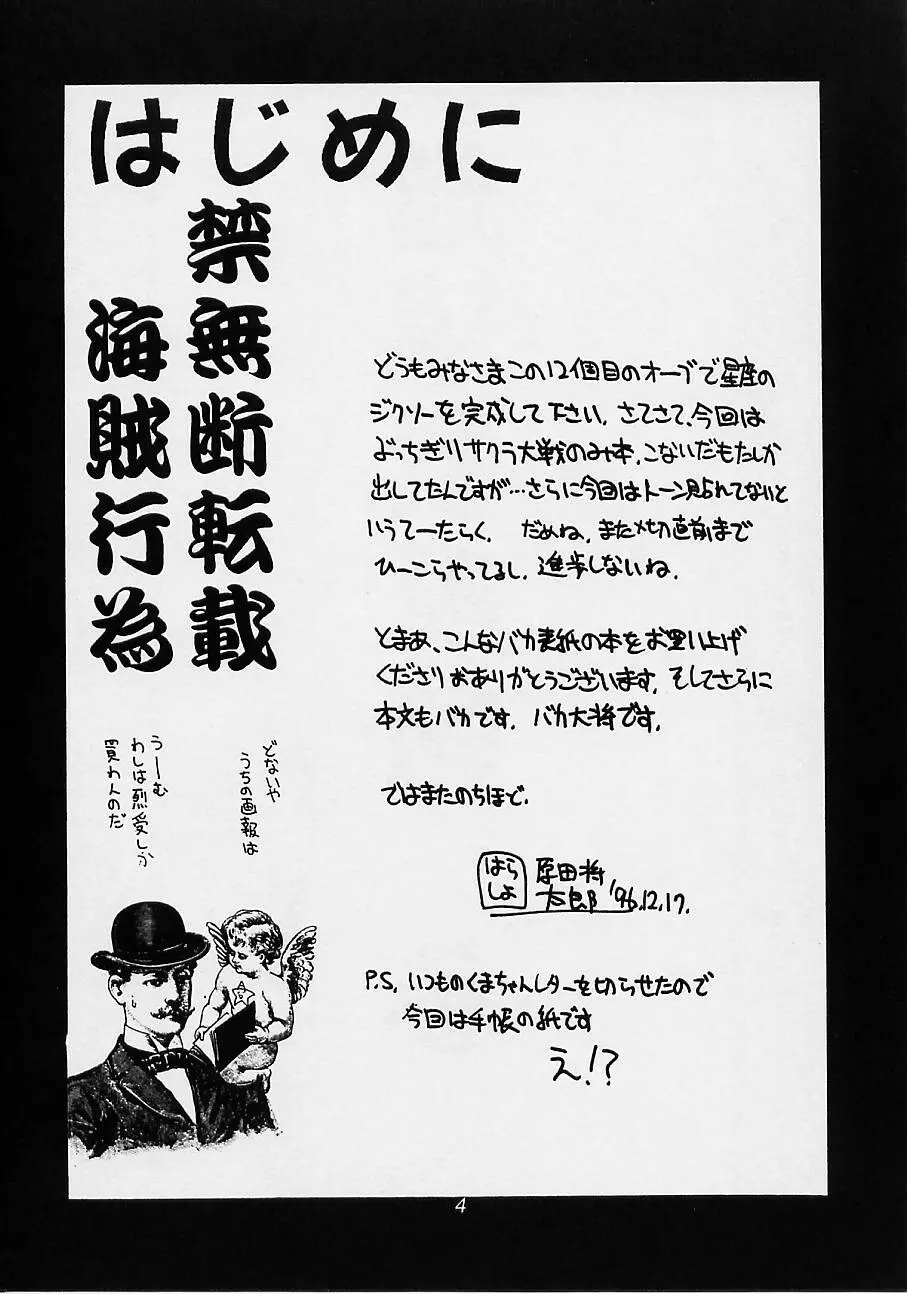 はじめに
禁無断転載
海賊行為
どうもみなさまこの12個目のオーブで星座の
ジクソーを完成して下さい。さてさて、今回は
ぶっちぎりサクラ大戦のみ本。こないだもたしか
出してたんですが…さらに今回はトーン貼れてないと
いうてーたらく。 だめね。また〆切直前まで
ひーこらやってるし。進歩しないね。
とまあ、こんなバカ表紙の本をお買い上げ
くださりおありがとうございます。そしてさらに
本文もバカです。バカ大将です。
ではまたのちほど。
はら
しょ
原田将
太郎 '96.12.17.
P.S. いつものくまちゃんレターを切らせたので
今回は手帳の紙です
え!?
どないや
うちの画報は
うーむ
わしは烈愛しか
買わんのだ
4